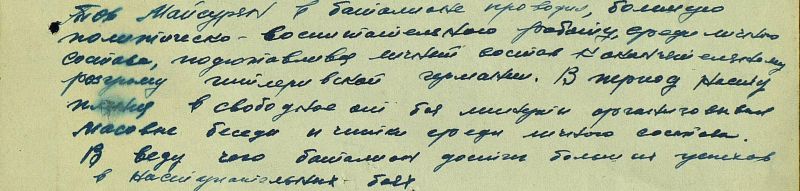 Тов Майсурян в баталионе проводил, большую
политическо-воспитательного работу, среди личного
состава, подготавливая личный состав к окончательному
розгрому гитлеровской германии. В период наступ
пления в свободное от боя минути организовывал
масовые беседы и читки среди личного состава.
В веду чего баталион достиг больших успехов
в наступательных боях.